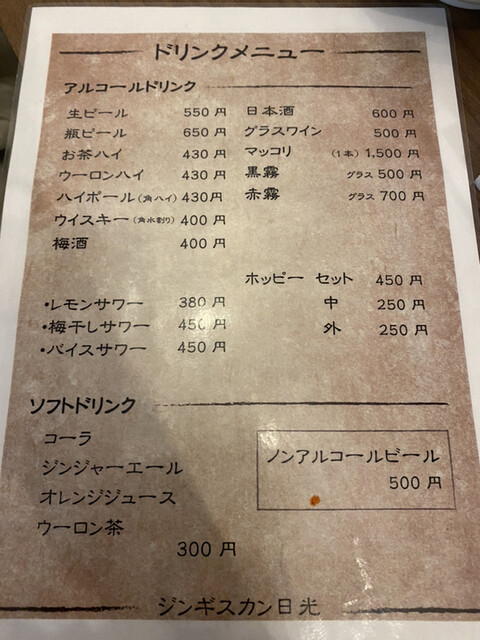 ドリンクメニュー
アルコールドリンク
生ビール 550 円
瓶ビール 650 円
お茶ハイ 430 円
ウーロンハイ 430 円
ハイボール (角ハイ) 430円
ウイスキー (角水割り) 400 円
梅酒 400 円
・レモンサワー 380 円
・梅干しサワー 450 円
・バイスサワー 450 円
日本酒 600 円
グラスワイン 500 円
マッコリ (1本) 1,500 円
黒霧 グラス 500 円
赤霧 グラス 700 円
ホッピー セット 450 円
中 250 円
外 250 円
ソフトドリンク
コーラ
ジンジャーエール
オレンジジュース
ウーロン茶
300 円
ノンアルコールビール
500 円
ジンギスカン日光